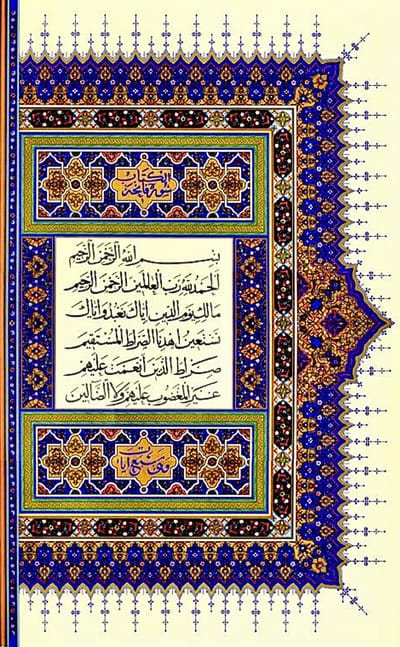 سورة فاتحة الكتاب
بسم الله الرحمن الرحيم
الحمد لله رب العالمين الرحمن الرحيم
مالك يوم الدين اياك نعبد واياك
نستعين اهدنا الصراط المستقيم
صراط الذين انعمت عليهم
غير المغضوب عليهم ولا الضالين
وهي سبع آيات